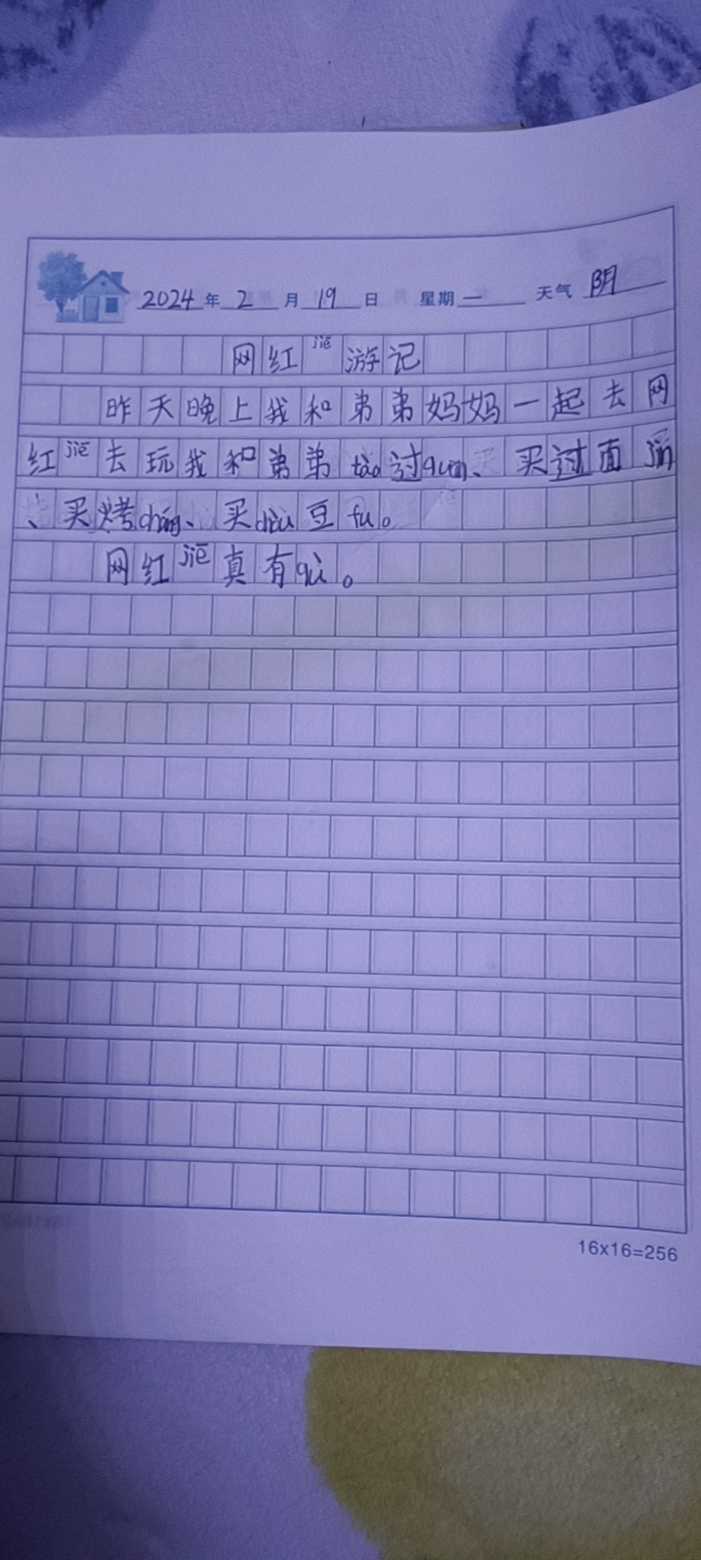 2024年2月19日 星期一 天气阴
网红jiē游记
昨天晚上我和弟弟妈妈一起去网
红jiē去玩我和弟弟tào过quan、买过面jin
、买烤cháng、买chòu豆fu。
网红jiē真有qù。
16x16=256